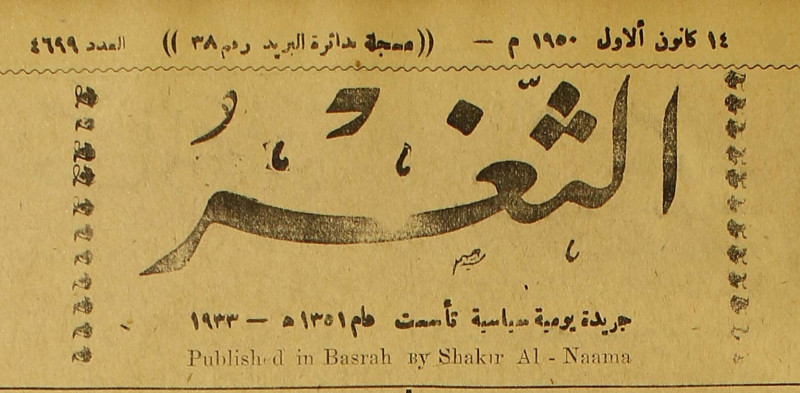 ١٤ كانون ألاول ١٩٥٠ م – ((مسجلة بدائرة البريد رقم ٣٨)) العدد ٤٦٩٩
الثّغر
جريدة يومية سياسية تأسست عام ١٣٥١ه – ١٩٣٣
Published in Basrah BY Shakir Al - Naama